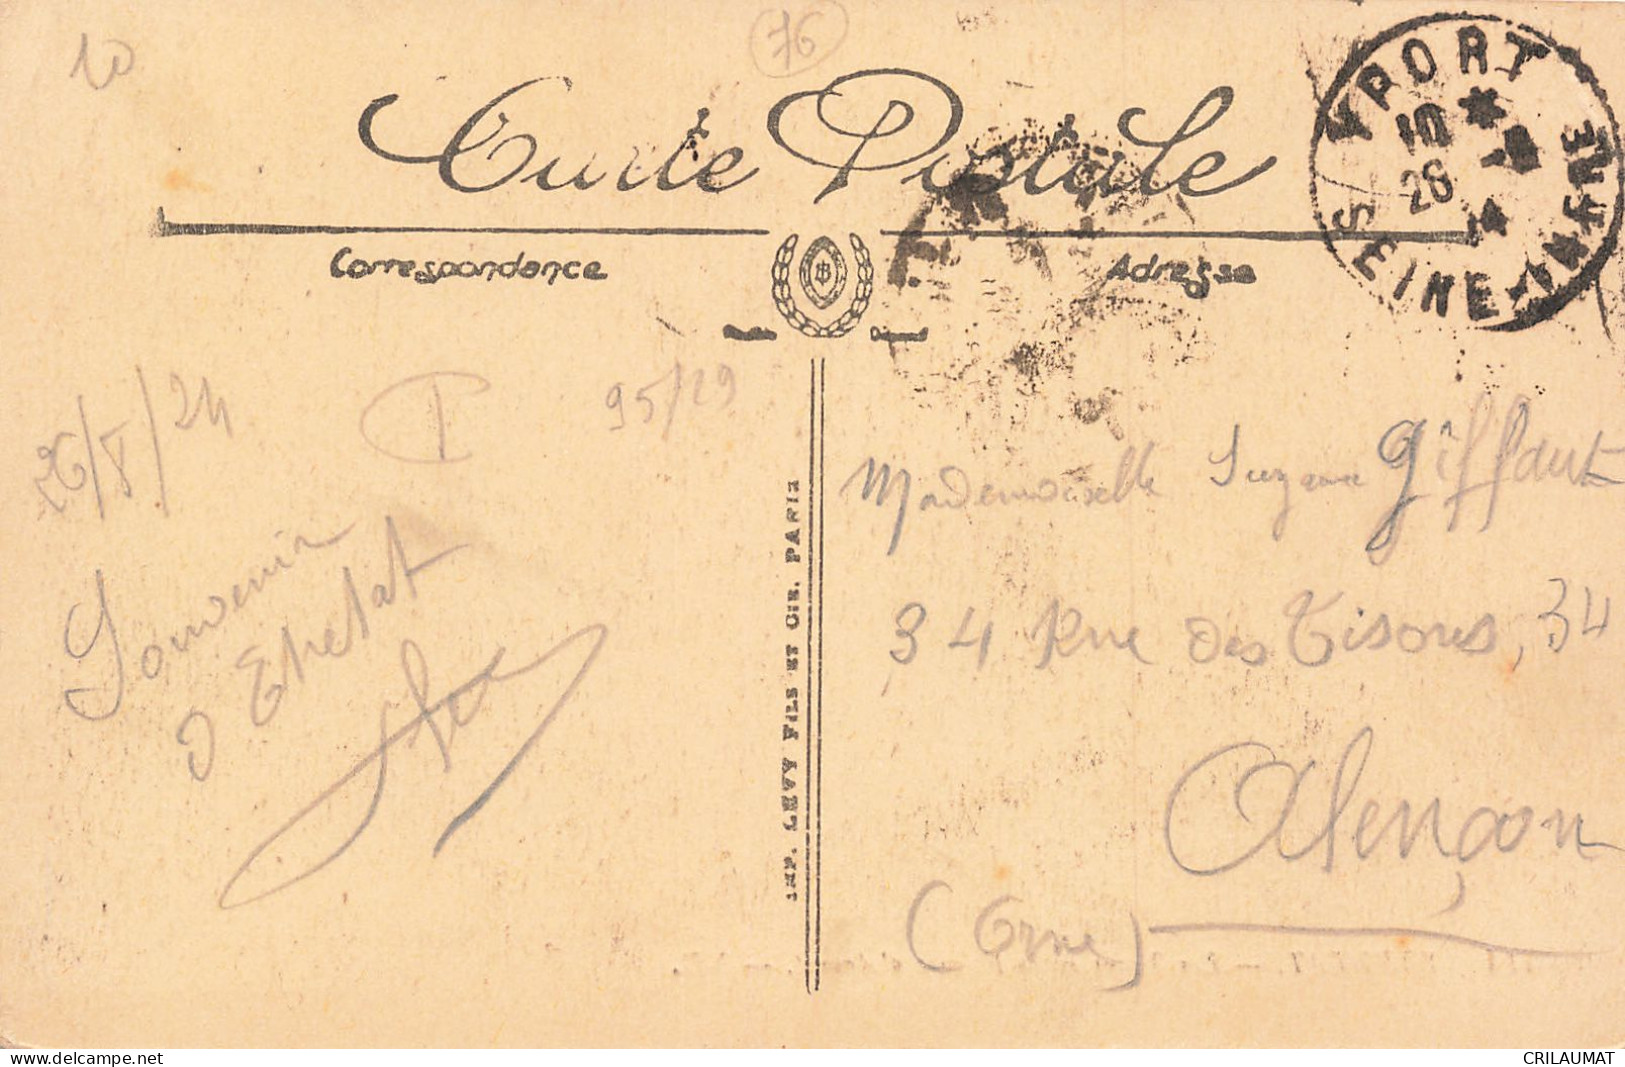 10
76
Carte Postale
YPORT
10 *
26
24
SEINE-INFRE
Correspondance
Adresse
26/8/24
95/29
Souvenir
d Etretat
Mademoiselle Suzanne Giffaut
34 Rue des Tisons, 34
Alençon
(Orne)
IMP. LEVY FILS ET CIE. PARIS
https://www.delcampe.net
CRILAUMAT